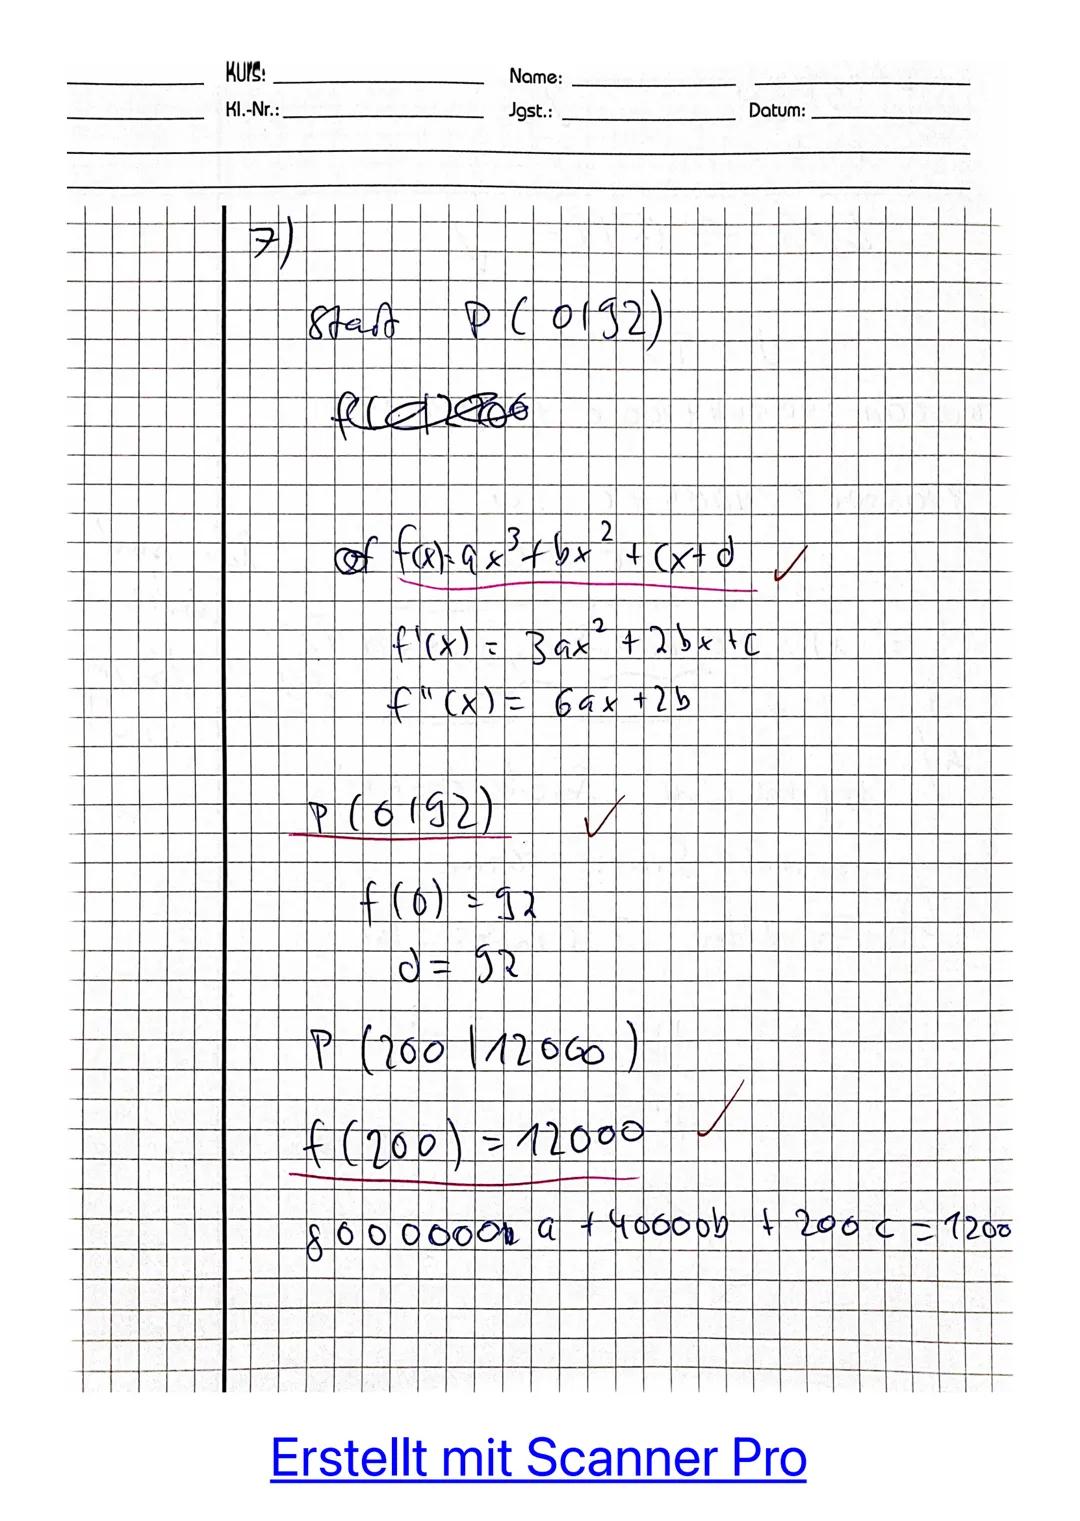 Kurs: Name:
Kl.-Nr.: Jgst.: Datum:
7)
Start P(0|92)
f(x)=ax³+bx²+cx+d ✓
f'(x) = 3ax²+2bx+c
f''(x) = 6ax+2b
P(0|92) ✓
f(0) = 92
d = 92
P(200|12000)
f(200) = 12000 ✓
8000000 a + 40000b + 200 c = 1200
Erstellt mit Scanner Pro